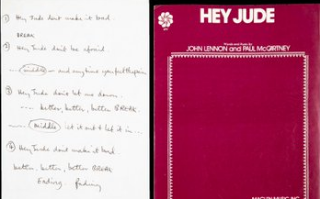 ① Hey Jude don't make it bad.
BREAK
② Hey Jude don't be afraid
middle or and any time you feel the pain
③ Hey Jude don't let me down
better, better, better BREAK
middle let it out & let it in ...
④ Hey Jude don't make it bad
better, better, better BREAK
fading. fading
HEY JUDE
Words and Music by
JOHN LENNON and PAUL McCARTNEY